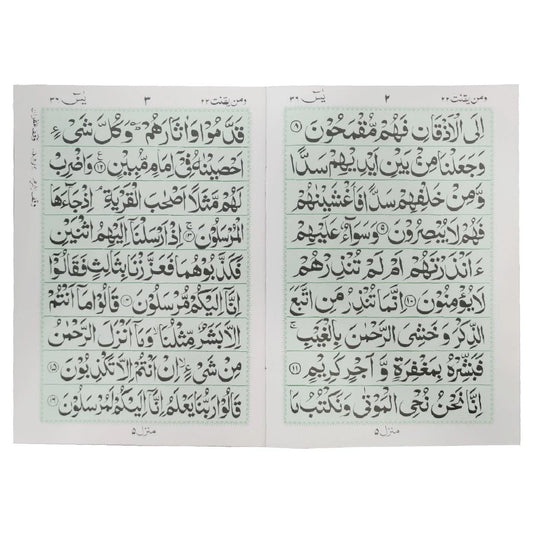 ومن يقنت ٢٢
٢
يٰسٓ ٣٦
اِلَى الْاَذْقَانِ فَهُمْ مُّقْمَحُوْنَ ﴿۸﴾
وَجَعَلْنَا مِنْۢ بَيْنِ اَيْدِيْهِمْ سَدًّا
وَّمِنْ خَلْفِهِمْ سَدًّا فَاَغْشَيْنٰهُمْ
فَهُمْ لَا يُبْصِرُوْنَ ﴿۹﴾ وَسَوَآءٌ عَلَيْهِمْ
ءَاَنْذَرْتَهُمْ اَمْ لَمْ تُنْذِرْهُمْ
لَا يُؤْمِنُوْنَ ﴿۱۰﴾ اِنَّمَا تُنْذِرُ مَنِ اتَّبَعَ
الذِّكْرَ وَخَشِيَ الرَّحْمٰنَ بِالْغَيْبِ ۚ
فَبَشِّرْهُ بِمَغْفِرَةٍ وَّاَجْرٍ كَرِيْمٍ ﴿۱۱﴾
اِنَّا نَحْنُ نُحْيِ الْمَوْتٰى وَنَكْتُبُ مَا
منزل ۵
ومن يقنت ٢٢
٣
يٰسٓ ٣٦
قَدَّمُوْا وَاٰثَارَهُمْ ؕ وَكُلَّ شَيْءٍ
اَحْصَيْنٰهُ فِيْٓ اِمَامٍ مُّبِيْنٍ ﴿۱۲﴾ وَاضْرِبْ
لَهُمْ مَّثَلًا اَصْحٰبَ الْقَرْيَةِ ۘ اِذْ جَآءَهَا
الْمُرْسَلُوْنَ ﴿۱۳﴾ اِذْ اَرْسَلْنَآ اِلَيْهِمُ اثْنَيْنِ
فَكَذَّبُوْهُمَا فَعَزَّزْنَا بِثَالِثٍ فَقَالُوْٓا
اِنَّآ اِلَيْكُمْ مُّرْسَلُوْنَ ﴿۱۴﴾ قَالُوْا مَآ اَنْتُمْ
اِلَّا بَشَرٌ مِّثْلُنَا ۙ وَمَآ اَنْزَلَ الرَّحْمٰنُ
مِنْ شَيْءٍ ۙ اِنْ اَنْتُمْ اِلَّا تَكْذِبُوْنَ ﴿۱۵﴾
قَالُوْا رَبُّنَا يَعْلَمُ اِنَّآ اِلَيْكُمْ لَمُرْسَلُوْنَ ﴿۱۶﴾
منزل ۵